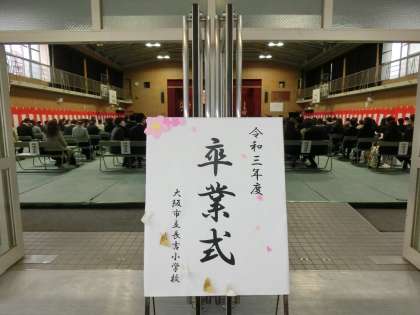 令和三年度
卒業式
大阪市立長吉小学校